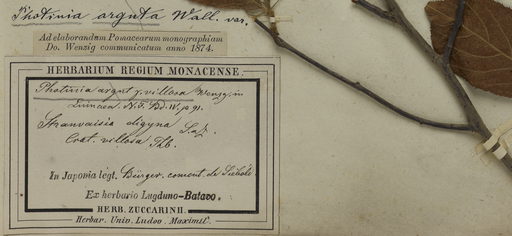 Photinia arguta Wall. var.
Ad elaborandum Pomacearum monographiam
Do. Wenzig communicatum anno 1874.
HERBARIUM REGIUM MONACENSE.
Photinia argut γ. villosa Wenzg. in
Linnaea. N. F. Bd. IV. p. 91.
Stranvaisia digyna S. et Z.
Crat. villosa Thb.
In Japonia legt. Bürger. comont. de Siebold.
Ex herbario Lugduno-Batavo.
HERB. ZUCCARINII.
Herbar. Univ. Ludov. Maximil.